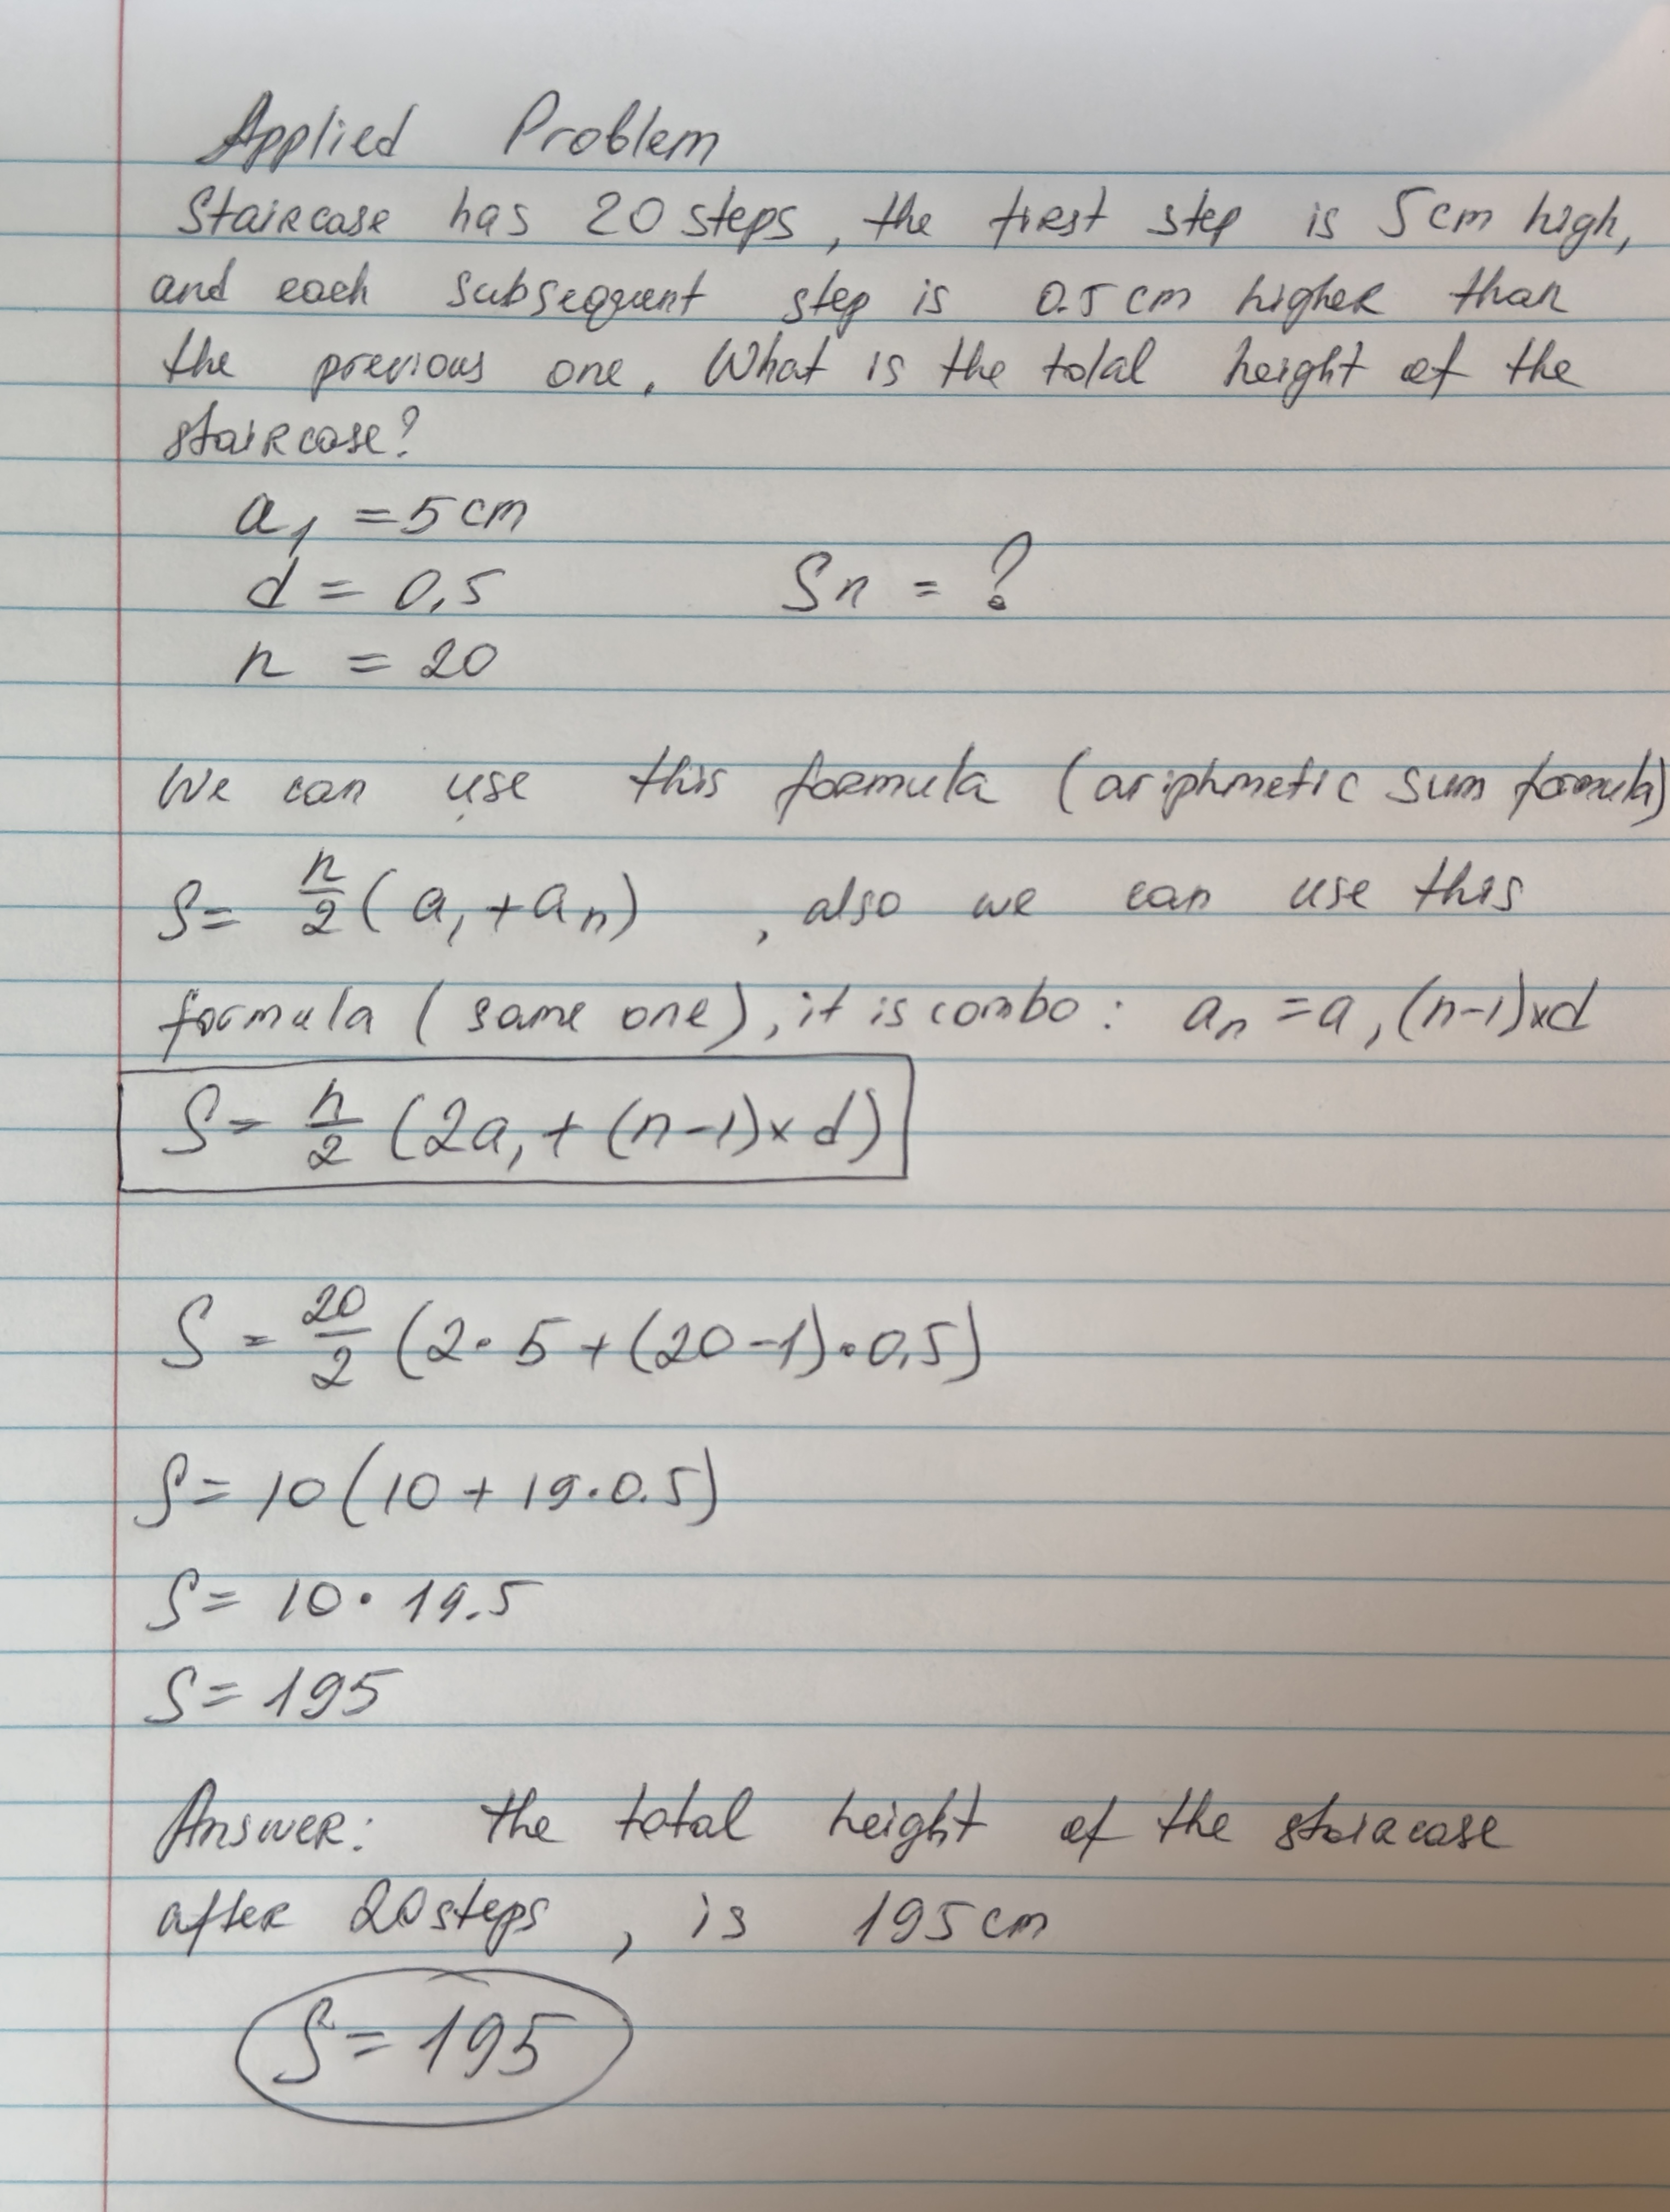 Applied Problem
Staircase has 20 steps, the first step is 5cm high,
and each subsequent step is 0.5 cm higher than
the previous one. What is the total height of the
staircase?
a₁ = 5 cm
d = 0,5 Sn = ?
n = 20
We can use this formula (ariphmetic sum formula)
S = n/2 (a₁ + aₙ) , also we can use this
formula (same one), it is combo: aₙ = a₁ (n-1)×d
S = n/2 (2a₁ + (n-1)× d)
S = 20/2 (2· 5 + (20-1)·0,5)
S = 10(10 + 19·0.5)
S = 10· 19.5
S = 195
Answer: the total height of the staiacase
after 20 steps , is 195 cm
S = 195